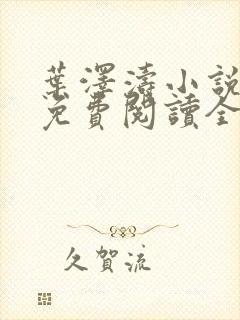 葉澤濤小說
免費閱讀全
久賀流